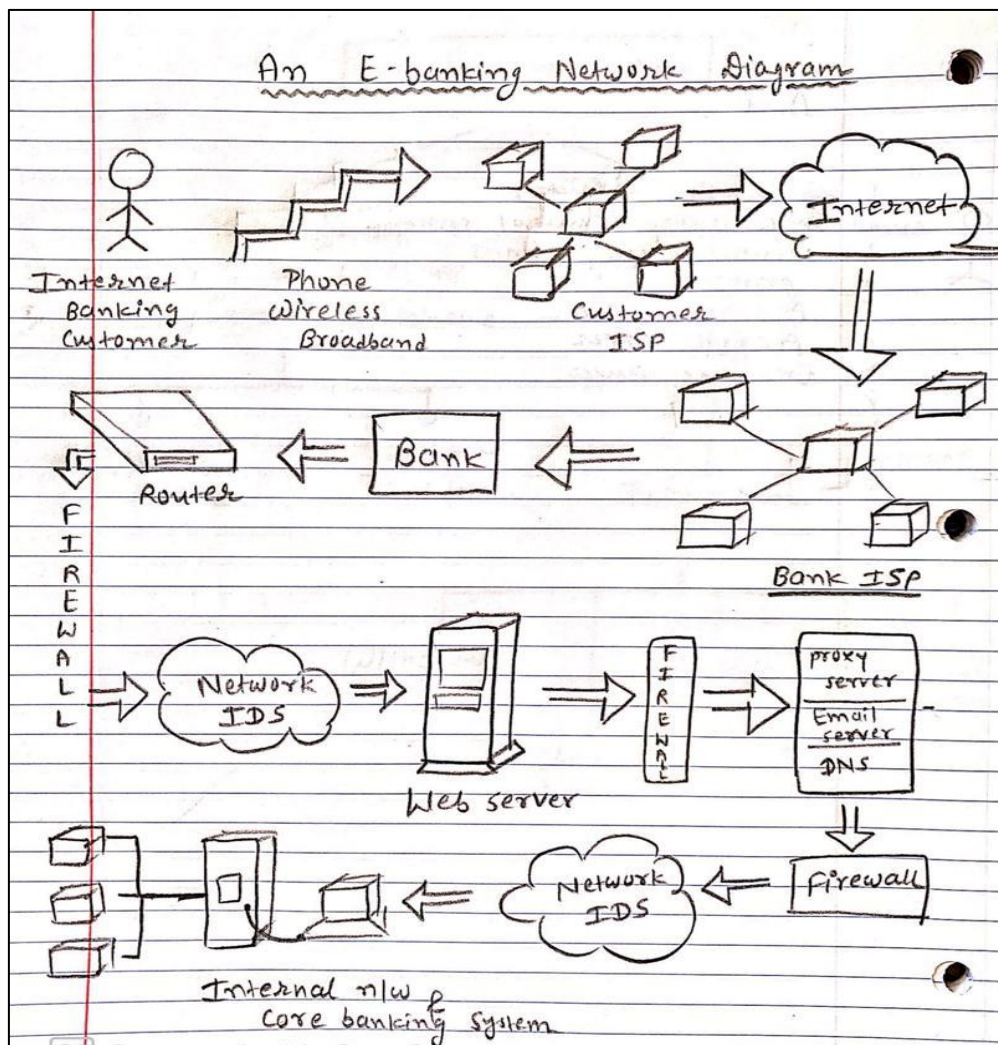 An E-banking Network Diagram
Internet
Internet
Banking
Customer
Phone
Wireless
Broadband
Customer
ISP
Bank
Router
Bank ISP
FIREWALL
Network
IDS
Web server
FIREWALL
proxy
server
Email
server
DNS
Firewall
Network
IDS
Internal n/w &
Core banking system